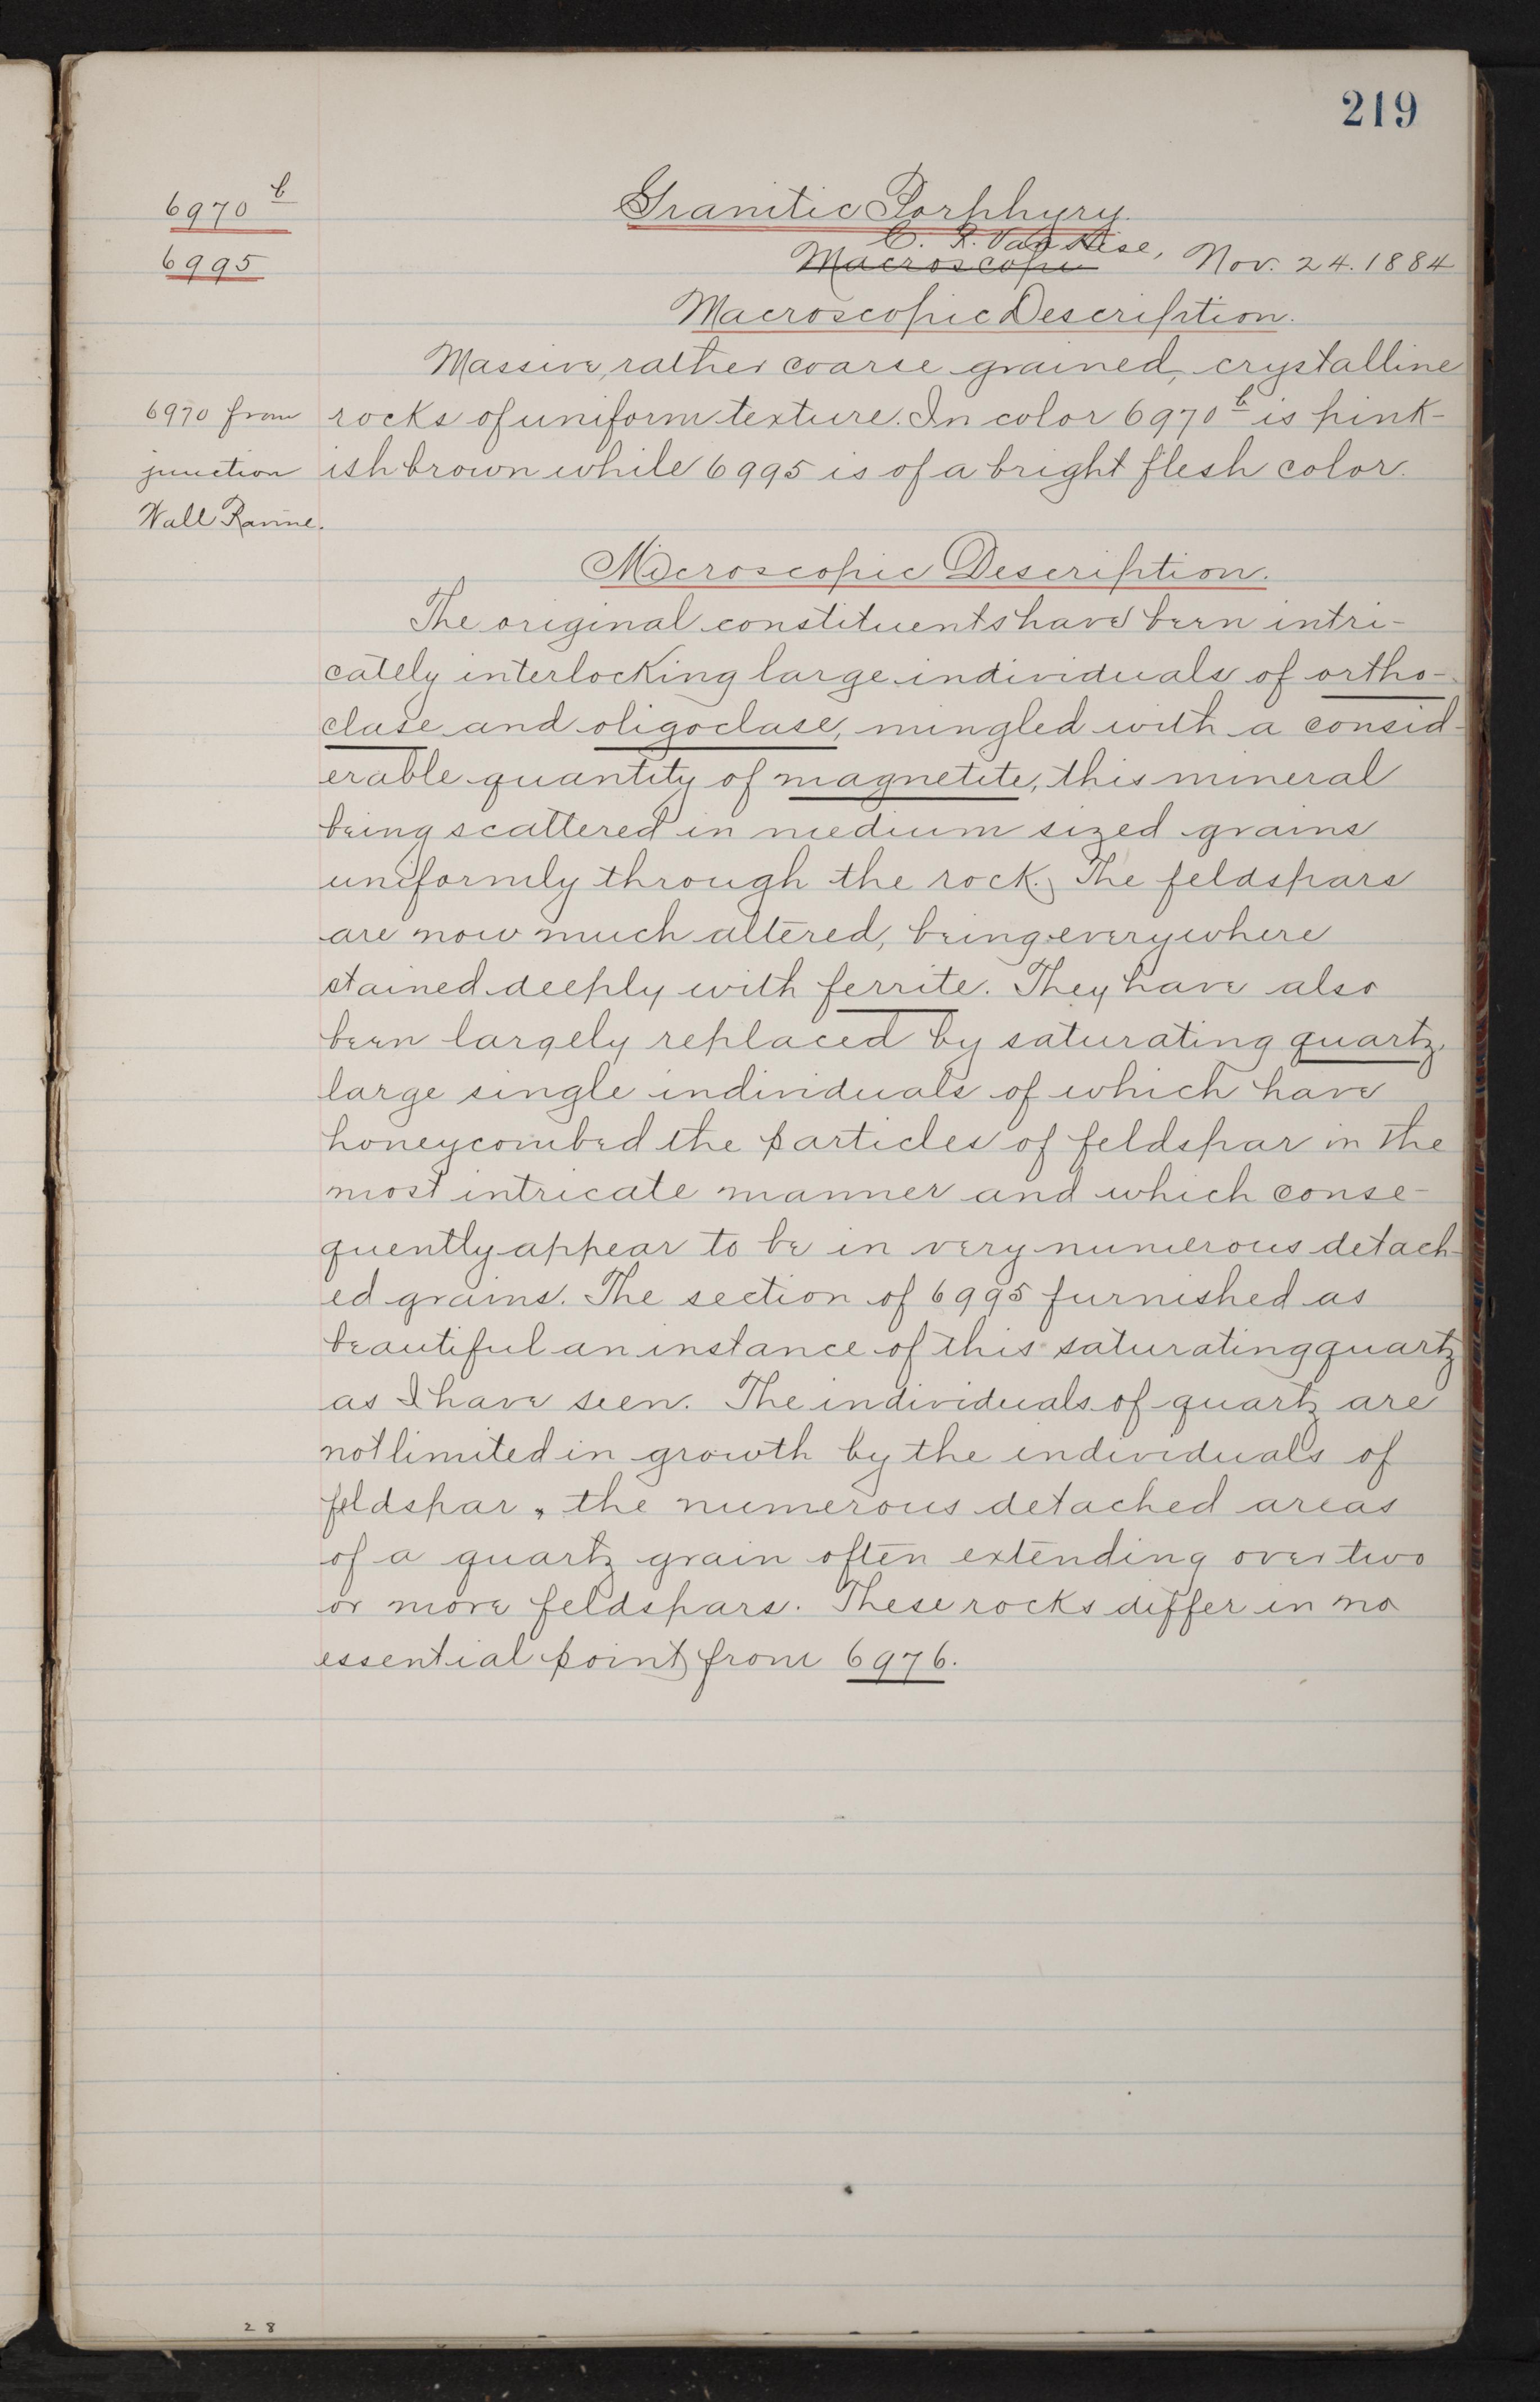 219
6970 b
6995
Granitic Porphyry.
C. R. Van Hise,
Macroscopic Nov. 24. 1884
Macroscopic Description.
Massive, rather coarse grained, crystalline
6970 from
junction
Wall Ravine.
rocks of uniform texture. In color 6970 b is pink-
ish brown while 6995 is of a bright flesh color.
Microscopic Description.
The original constituents have been intri-
cately interlocking large individuals of ortho-
clase and oligoclase, mingled with a consid-
erable quantity of magnetite, this mineral
being scattered in medium sized grains
uniformly through the rock. The feldspars
are now much altered, being everywhere
stained deeply with ferrite. They have also
been largely replaced by saturating quartz,
large single individuals of which have
honeycombed the particles of feldspar in the
most intricate manner and which conse-
quently appear to be in very numerous detach-
ed grains. The section of 6995 furnished as
beautiful an instance of this saturating quartz
as I have seen. The individuals of quartz are
not limited in growth by the individuals of
feldspar, the numerous detached areas
of a quartz grain often extending over two
or more feldspars. These rocks differ in no
essential point from 6976.
28